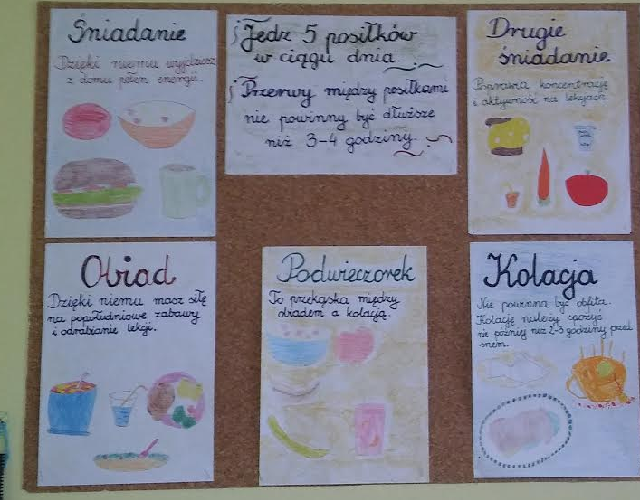 Śniadanie
Dzięki niemu wyjdziesz
z domu pełen energii.
Jedz 5 posiłków
w ciągu dnia
Przerwy między posiłkami
nie powinny być dłuższe
niż 3-4 godziny
Drugie
śniadanie.
Poprawia koncentrację
i aktywność na lekcjach
Obiad
Dzięki niemu masz siłę
na popołudniowe zabawy
i odrabianie lekcji.
Podwieczorek
To przekąska między
obiadem a kolacją.
Kolacja
Nie powinna być obfita.
Kolację należy spożyć
nie później niż 2-3 godziny przed
snem.